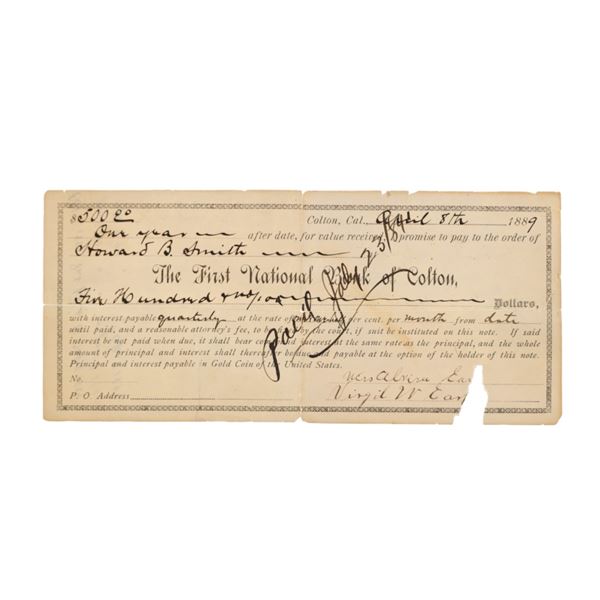 $500 00 Colton, Cal., April 8th 1889
One year after date, for value received, I promise to pay to the order of
Howard B. Smith
The First National Bank of Colton,
Five Hundred & no/100 Dollars,
with interest payable quarterly at the rate of per cent. per month from date
until paid, and a reasonable attorney's fee, to be by the court, if suit be instituted on this note. If said
interest be not paid when due, it shall bear interest at the same rate as the principal, and the whole
amount of principal and interest shall thereafter be due and payable at the option of the holder of this note.
Principal and interest payable in Gold Coin of the United States.
No.
P. O. Address
Virgil W Ear
Paid